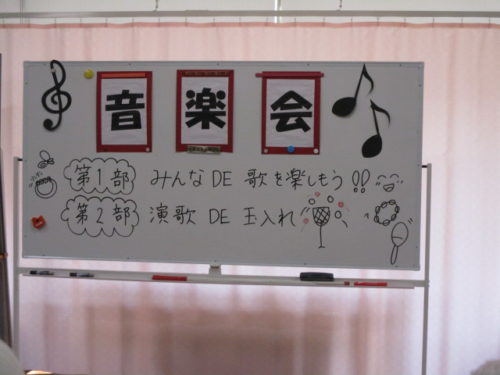 音楽会
第1部 みんなDE 歌を楽しもう!!
第2部 演歌 DE 玉入れ